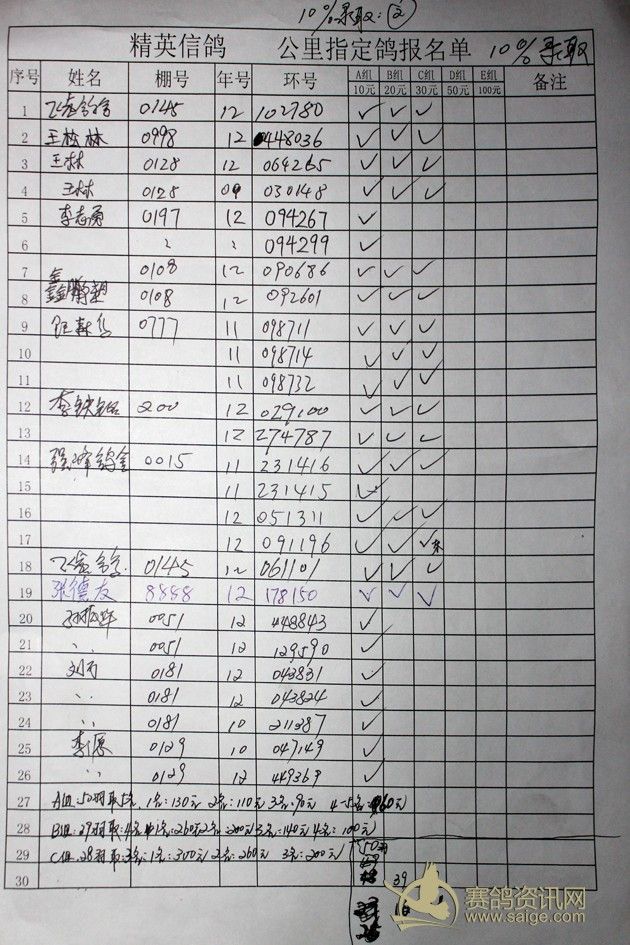 10%录取:②
精英信鸽 公里指定鸽报名单 10%录取
序号 姓名 棚号 年号 环号 A组10元 B组20元 C组30元 D组50元 E组100元 备注
1 0145 12 102780 ✓ ✓ ✓
2 王松林 0998 12 0448036 ✓ ✓ ✓
3 王林 0128 12 064265 ✓ ✓ ✓
4 王林 0128 09 030148 ✓ ✓ ✓
5 李志勇 0197 12 094267 ✓
6 〃 〃 094299 ✓
7 0108 12 090686 ✓ ✓ ✓
8 0108 12 092601 ✓ ✓ ✓
9 0777 11 098711 ✓ ✓ ✓
10 11 098714 ✓ ✓ ✓
11 11 098732 ✓ ✓ ✓
12 李铁铭 200 12 029100 ✓ ✓ ✓
13 12 274787 ✓ ✓ ✓
14 0015 11 231416 ✓ ✓ ✓
15 11 231415 ✓
16 12 051311 ✓ ✓ ✓
17 12 091196 ✓ ✓ ✓
18 0145 12 061101 ✓ ✓ ✓
19 张德友 8888 12 178150 ✓ ✓ ✓
20 0051 12 448843 ✓
21 〃 0051 12 129590 ✓
22 刘万 0181 12 043831 ✓
23 〃 0181 12 043824 ✓
24 〃 0181 10 211387 ✓
25 李原 0129 10 047149 ✓
26 〃 0129 12 449369 ✓
27 A组:52羽取5名 1名:130元 2名:110元 3名:90元 4-5名 60元
28 B组:29羽取:4名 1名:260元 2名 200元 3名:140元 4名:100元
29 C组:28羽取:3名:1名:300元 2名:260元 3名:200元
30 39
赛鸽资讯网
www.saige.com